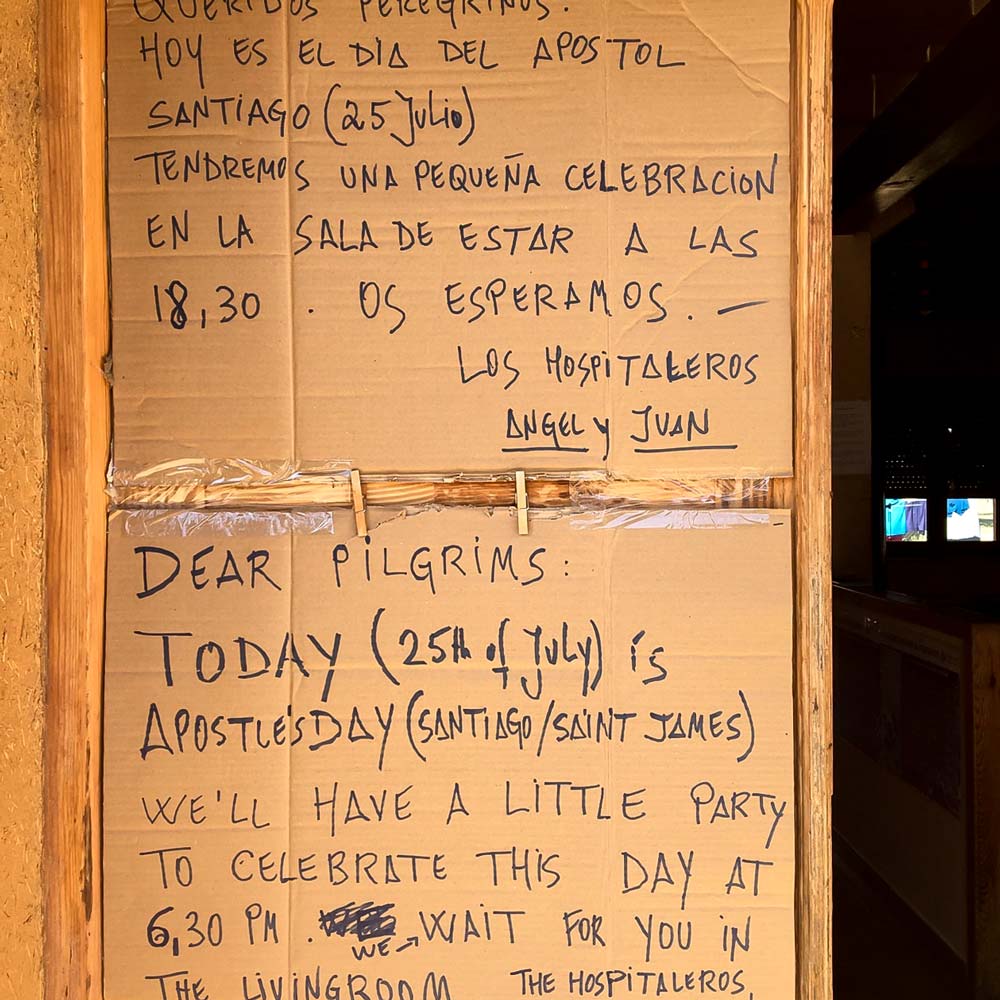 QUERIDOS PEREGRINOS:
HOY ES EL DIA DEL APOSTOL
SANTIAGO (25 Julio)
TENDREMOS UNA PEQUEÑA CELEBRACION
EN LA SALA DE ESTAR A LAS
18,30 . OS ESPERAMOS. —
LOS HOSPITALEROS
ANGEL y JUAN
DEAR PILGRIMS:
TODAY (25th of July) is
APOSTLE'S DAY (SANTIAGO/SAINT JAMES)
WE'LL HAVE A LITTLE PARTY
TO CELEBRATE THIS DAY AT
6,30 PM . WE WAIT FOR YOU IN
THE LIVINGROOM THE HOSPITALEROS,